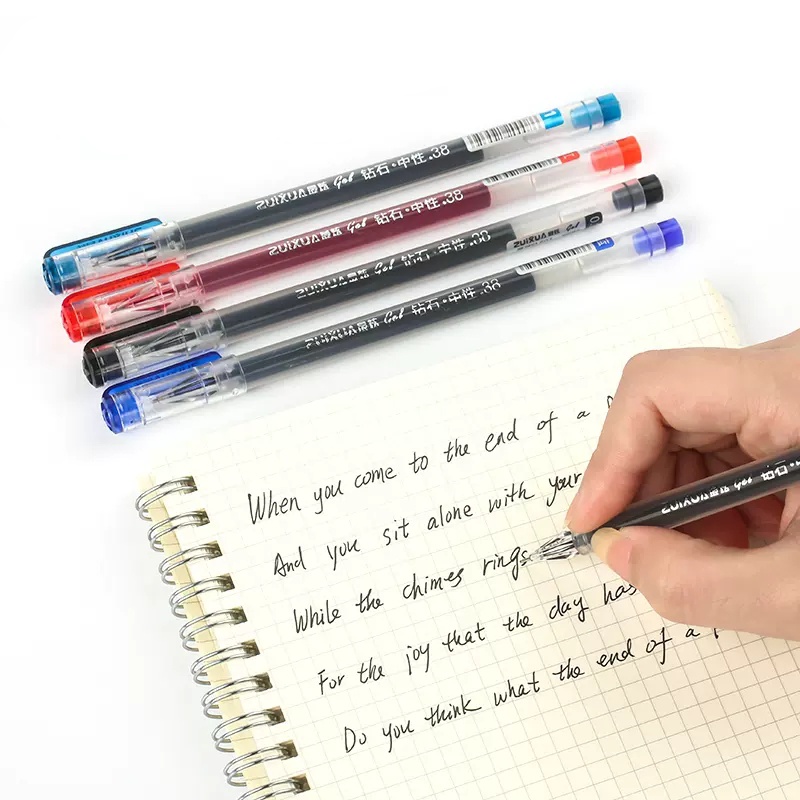 ZUIXUA最炫 Gel 钻石·中性.38
ZUIXUA最炫 Gel 钻石·中性.38
ZUIXUA最炫 Gel 钻石·中性.38
ZUIXUA最炫 Gel
ZUIXUA最炫 Gel 钻石·中性.38
When you come to the end of a
And you sit alone with your
ZUIXUA最炫 Gel 钻石·
While the chimes rings
For the joy that the day has
Do you think what the end of a